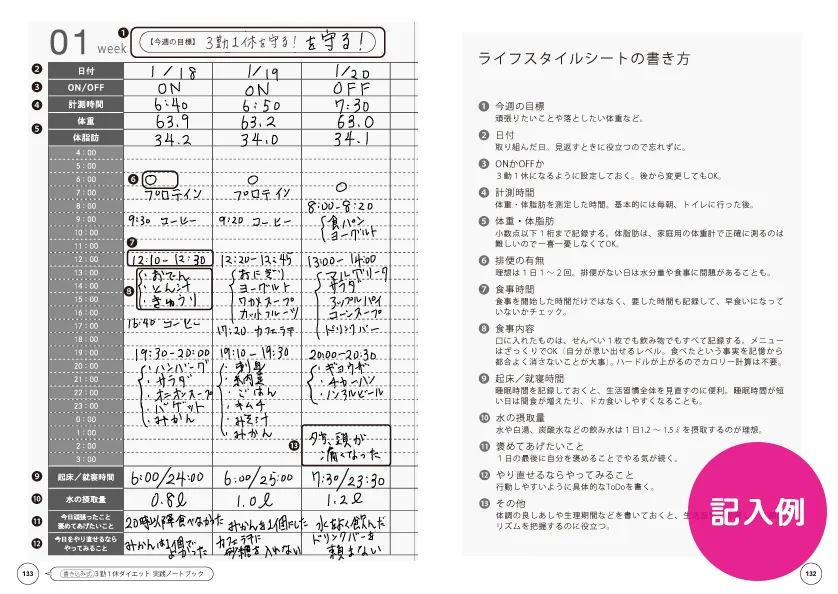 01 week
❶
【今週の目標】 3勤1休を守る! を守る!
❷ 日付 1/18 1/19 1/20
❸ ON/OFF ON ON OFF
❹ 計測時間 6:40 6:50 7:30
❺ 体重 63.9 63.2 63.0
体脂肪 34.2 34.0 34.1
4:00
5:00
6:00 ❻ ○ ○ ○
7:00 プロテイン プロテイン
8:00 8:00-8:20
9:00 9:30 コーヒー 9:20 コーヒー ・食パン
10:00 ・ヨーグルト
11:00 ❼
12:00 12:10-12:30 12:20-12:45 13:00-14:00
13:00 ・おでん ・おにぎり ・マルゲリータ
14:00 ❽ ・とん汁 ・ヨーグルト ・サラダ
15:00 ・きゅうり ・ワカメスープ ・アップルパイ
16:00 ・カットフルーツ ・コーンスープ
17:00 16:40 コーヒー 17:20 カフェラテ ・ドリンクバー
18:00
19:00 19:30-20:00 19:10-19:30 20:00-20:30
20:00 ・ハンバーグ ・刺身 ・ギョウザ
21:00 ・サラダ ・ チャーハン
22:00 ・オニオンスープ ・ごはん ・ノンアルビール
23:00 ・バゲット ・キムチ
0:00 ・みかん ・みそ汁
1:00 ・みかん
2:00 ⓭ 夕方、頭が
3:00 痛くなった
❾ 起床/就寝時間 6:00/24:00 6:00/25:00 7:30/23:30
❿ 水の摂取量 0.8ℓ 1.0ℓ 1.2ℓ
⓫ 今日頑張ったこと 褒めてあげたいこと 20時以降食べなかった みかんを1個にした 水をよく飲んだ
⓬ 今日をやり直せるなら やってみること みかんは1個でよかった カフェラテに砂糖を入れない ドリンクバーを頼まない
133 書き込み式 3勤1休ダイエット 実践ノートブック
ライフスタイルシートの書き方
❶ 今週の目標
頑張りたいことや落としたい体重など。
❷ 日付
取り組んだ日。見返すときに役立つので忘れずに。
❸ ONかOFFか
3勤1休になるように設定しておく。後から変更してもOK。
❹ 計測時間
体重・体脂肪を測定した時間。基本的には毎朝、トイレに行った後。
❺ 体重・体脂肪
小数点以下1桁まで記録する。体脂肪は、家庭用の体重計で正確に測るのは
難しいので一喜一憂しなくてOK。
❻ 排便の有無
理想は1日1~2回。排便がない日は水分量や食事に問題があることも。
❼ 食事時間
食事を開始した時間だけではなく、要した時間も記録して、早食いになって
いないかチェック。
❽ 食事内容
口に入れたものは、せんべい1枚でも飲み物でもすべて記録する。メニュー
はざっくりでOK(自分が思い出せるレベル。食べたという事実を記憶から
都合よく消さないことが大事)。ハードルが上がるのでカロリー計算は不要。
❾ 起床/就寝時間
睡眠時間を記録しておくと、生活習慣全体を見直すのに便利。睡眠時間が短
い日は間食が増えたり、ドカ食いしやすくなることも。
❿ 水の摂取量
水や白湯、炭酸水などの飲み水は1日1.2~1.5ℓを摂取するのが理想。
⓫ 褒めてあげたいこと
1日の最後に自分を褒めることでやる気が続く。
⓬ やり直せるならやってみること
行動しやすいように具体的なToDoを書く。
⓭ その他
体調の良しあしや生理期間などを書いておくと、生活
リズムを把握するのに役立つ。
記入例
132